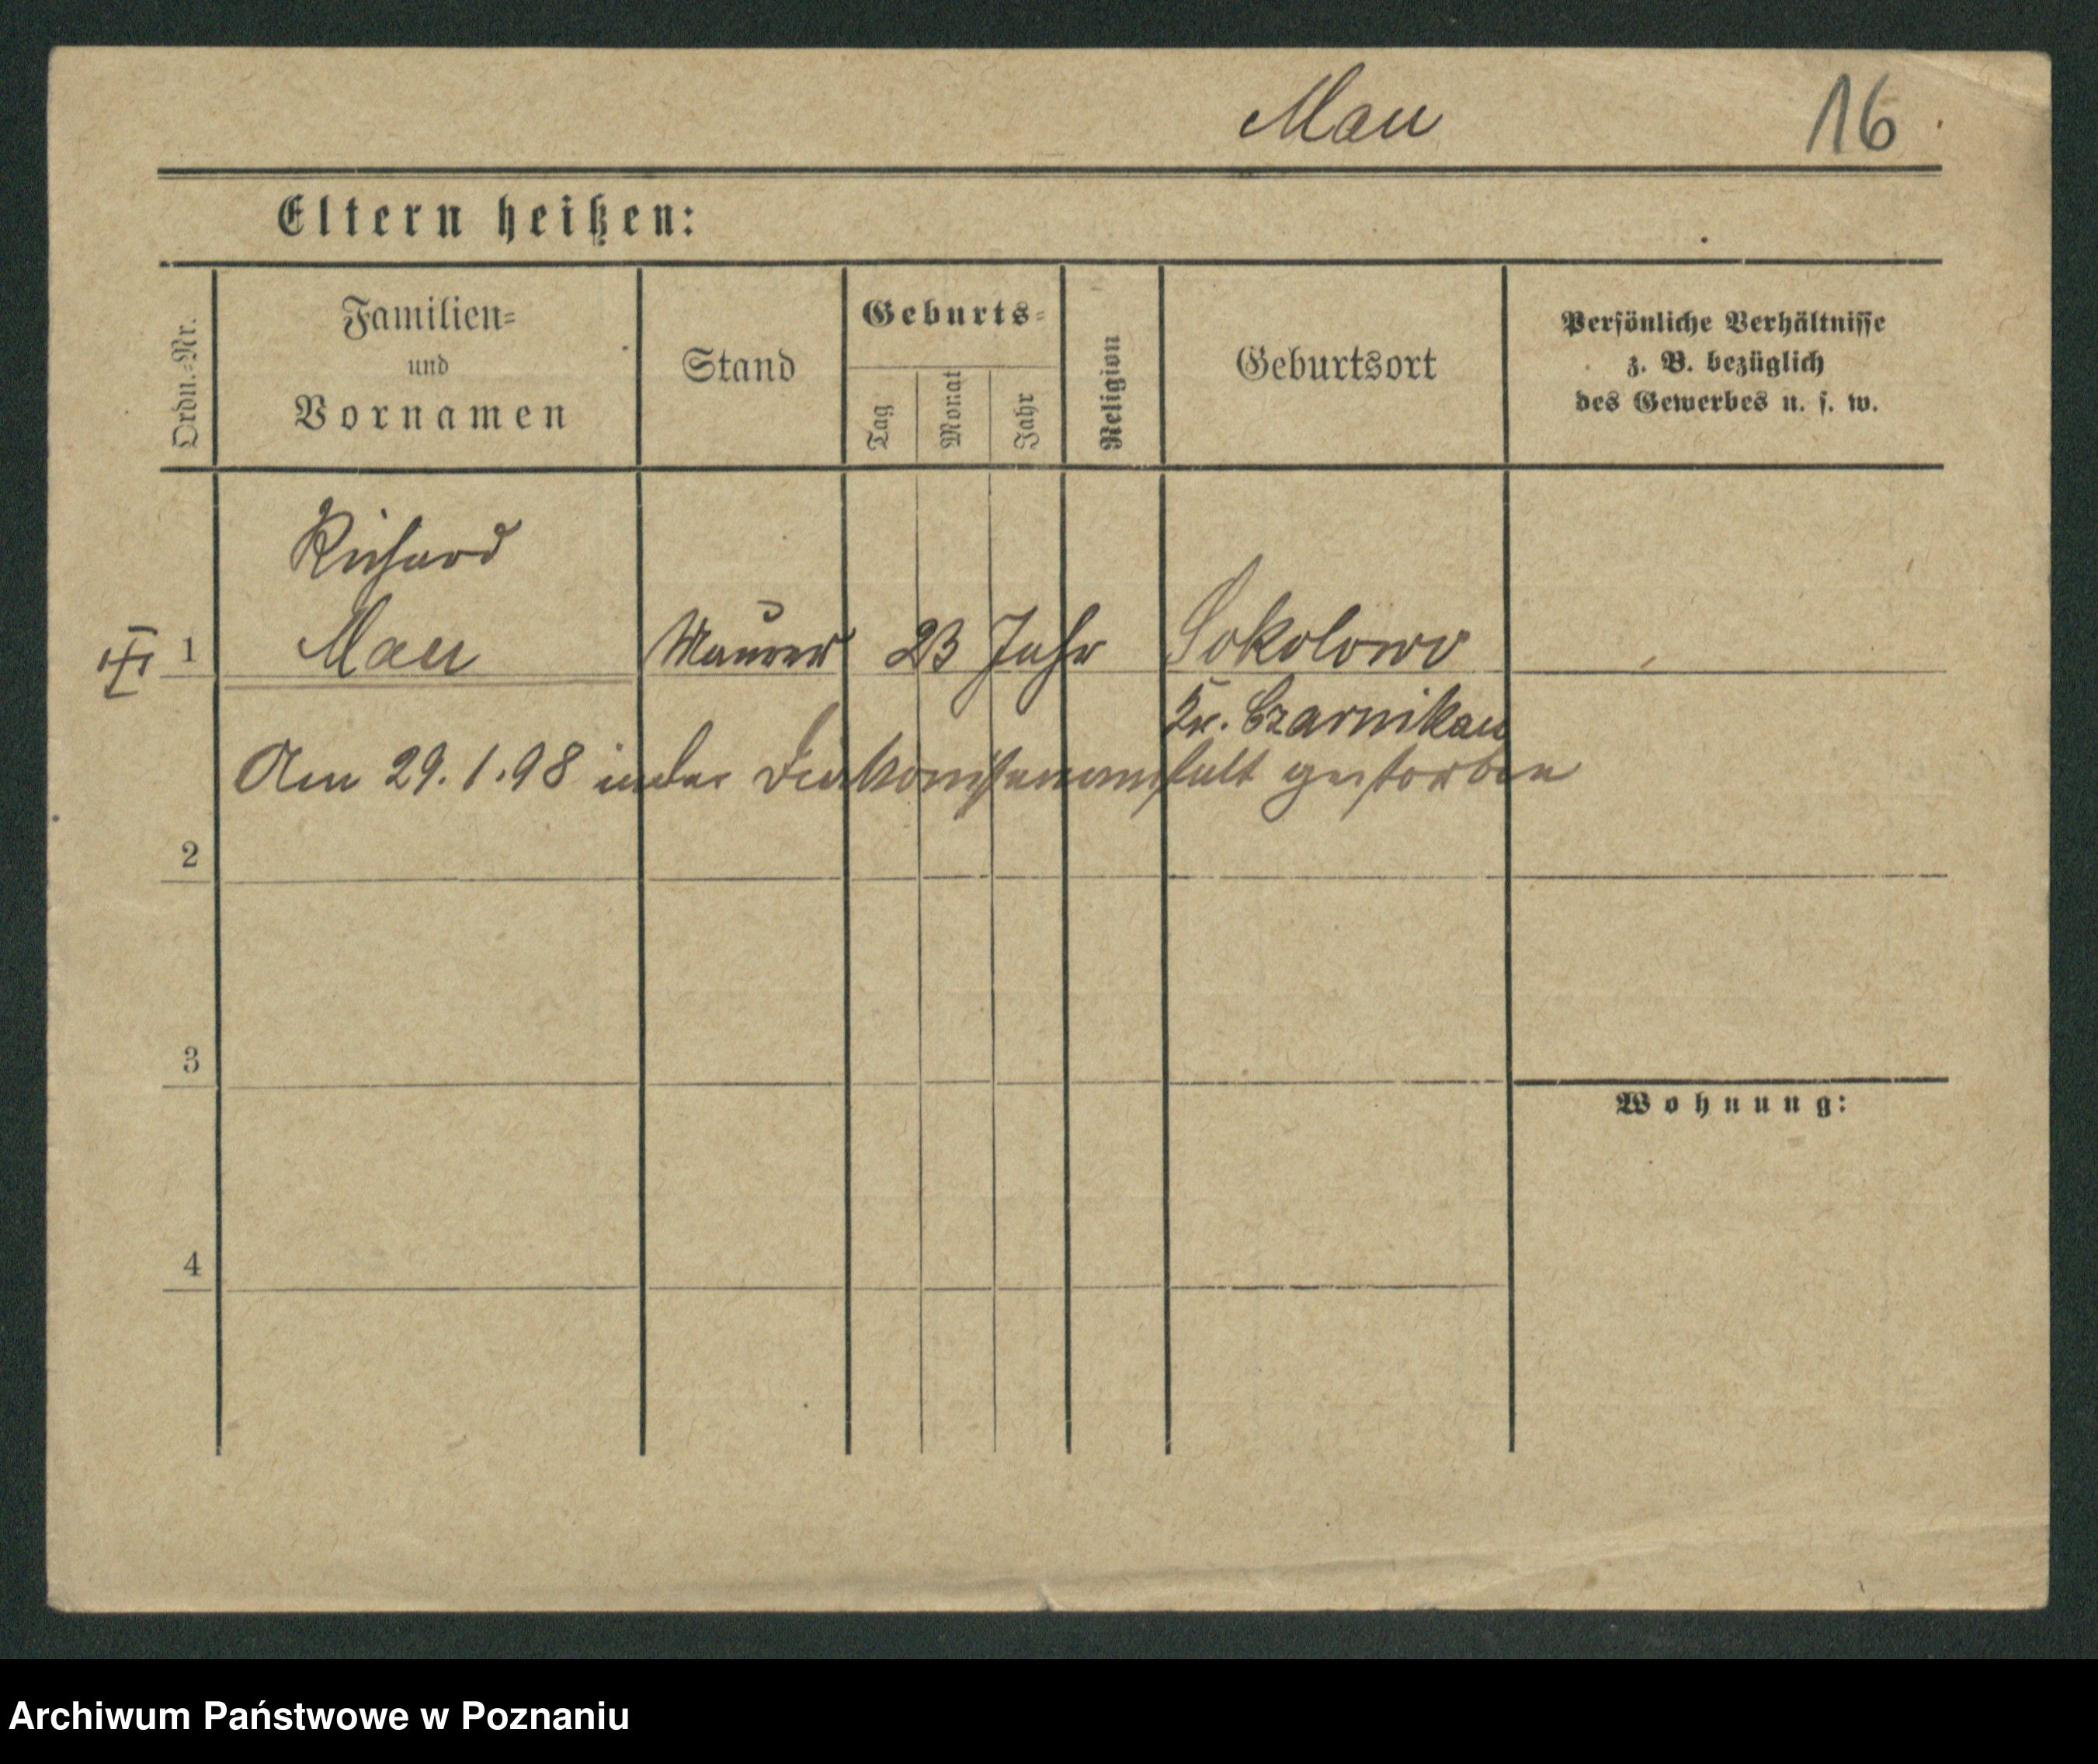 Mau
16
Eltern heißen:
Ordn.=Nr.
Familien=
und
Vornamen
Stand
Geburts=
Tag
Monat
Jahr
Religion
Geburtsort
Persönliche Verhältnisse
z. B. bezüglich
des Gewerbes u. s. w.
Richard
1 Mau Maurer 23 Jahr Sokolowo
Kr. Czarnikau
Am 29.1.98 in der Diakonissenanstalt gestorben
2
3
Wohnung:
4
Archiwum Państwowe w Poznaniu